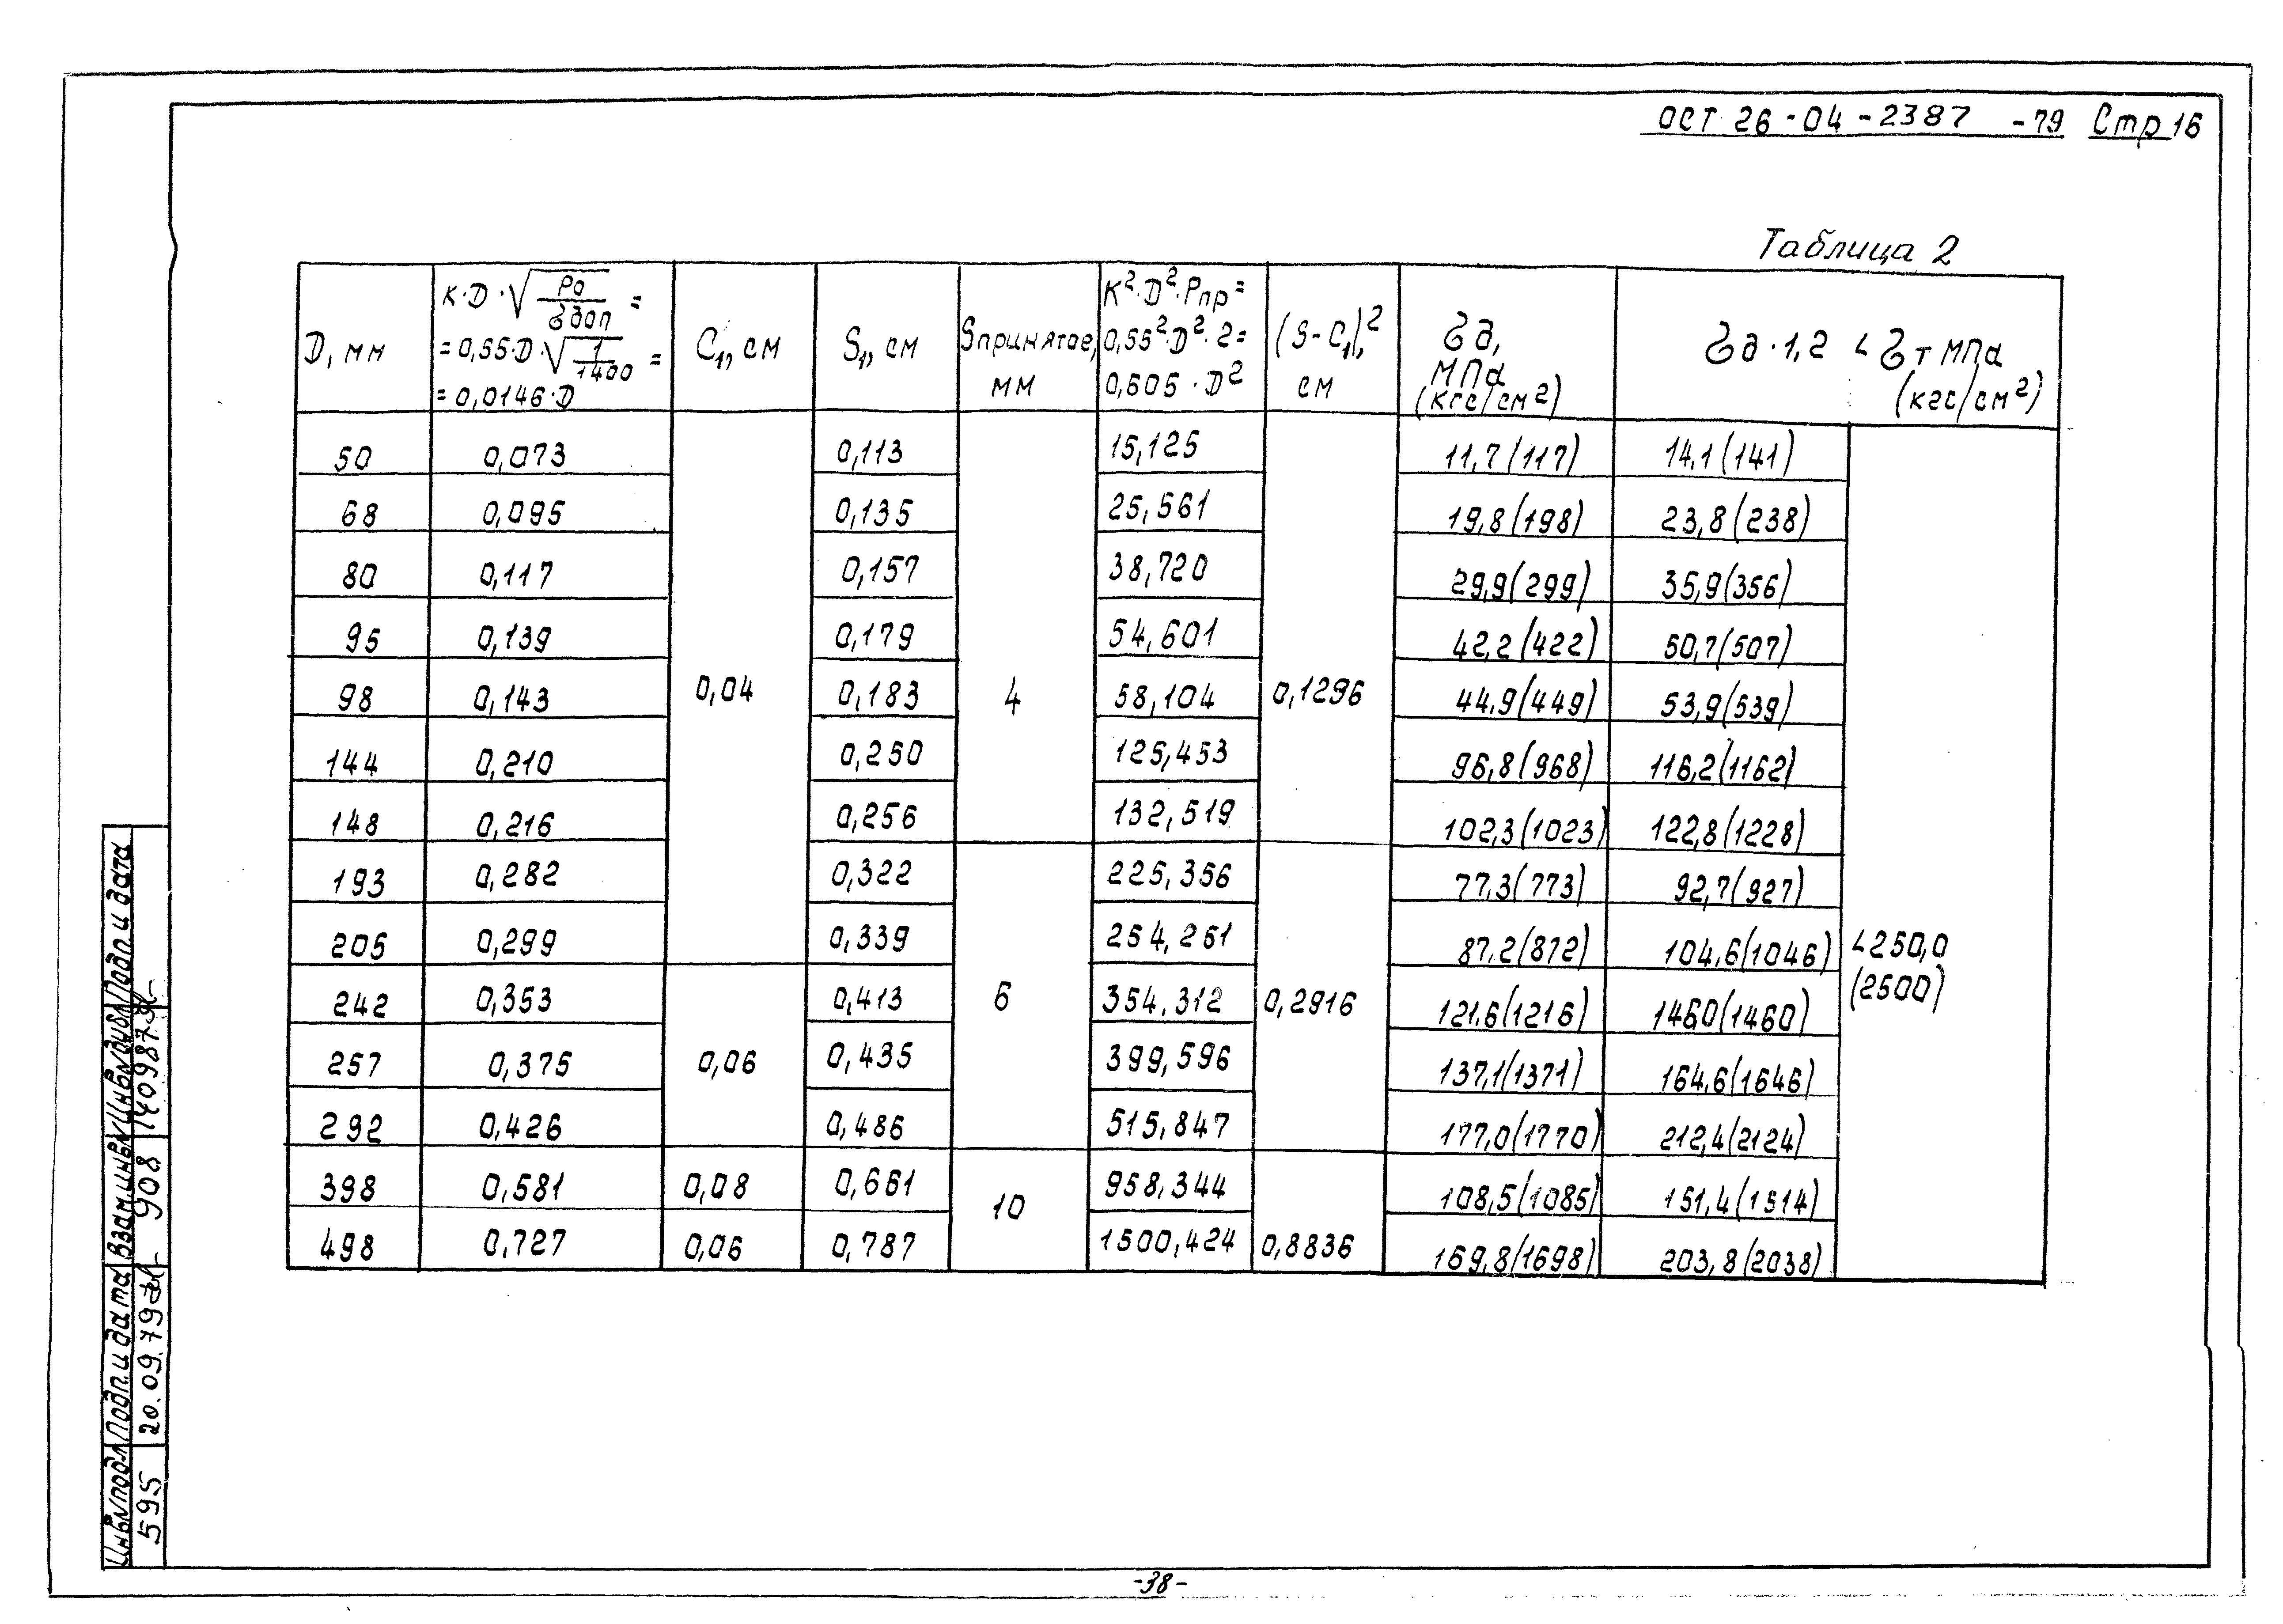 ОСТ 26-04-2387 -79 Стр 16
Таблица 2
D, мм | К·D·√(Ро/Ϭдоп) = = 0,55·D·√(1/1400) = = 0,0146·D | С₁, см | S₁, см | Sпринятое, мм | К²·D²·Рпр= 0,55²·D²·2= 0,605·D² | (S-C₁)², см | Ϭд, МПа (кгс/см²) | Ϭд·1,2 < Ϭт МПа (кгс/см²)
50 0,073 0,113 15,125 11,7(117) 14,1(141)
68 0,095 0,135 25,561 19,8(198) 23,8(238)
80 0,117 0,157 38,720 29,9(299) 35,9(356)
95 0,139 0,179 54,601 42,2(422) 50,7(507)
98 0,143 0,04 0,183 4 58,104 0,1296 44,9(449) 53,9(539)
144 0,210 0,250 125,453 96,8(968) 116,2(1162)
148 0,216 0,256 132,519 102,3(1023) 122,8(1228)
193 0,282 0,322 225,356 77,3(773) 92,7(927)
205 0,299 0,339 254,251 87,2(872) 104,6(1046) <250,0
(2500)
242 0,353 0,413 6 354,312 0,2916 121,6(1216) 1460(1460)
257 0,375 0,06 0,435 399,596 137,1(1371) 164,6(1646)
292 0,426 0,486 515,847 177,0(1770) 212,4(2124)
398 0,581 0,08 0,661 10 958,344 108,5(1085) 151,4(1514)
498 0,727 0,06 0,787 1500,424 0,8836 169,8(1698) 203,8(2038)
Инв.№подл. Подп. и дата Взам.инв.№ Инв.№дубл. Подп. и дата
595 20.09.79 908
-38-